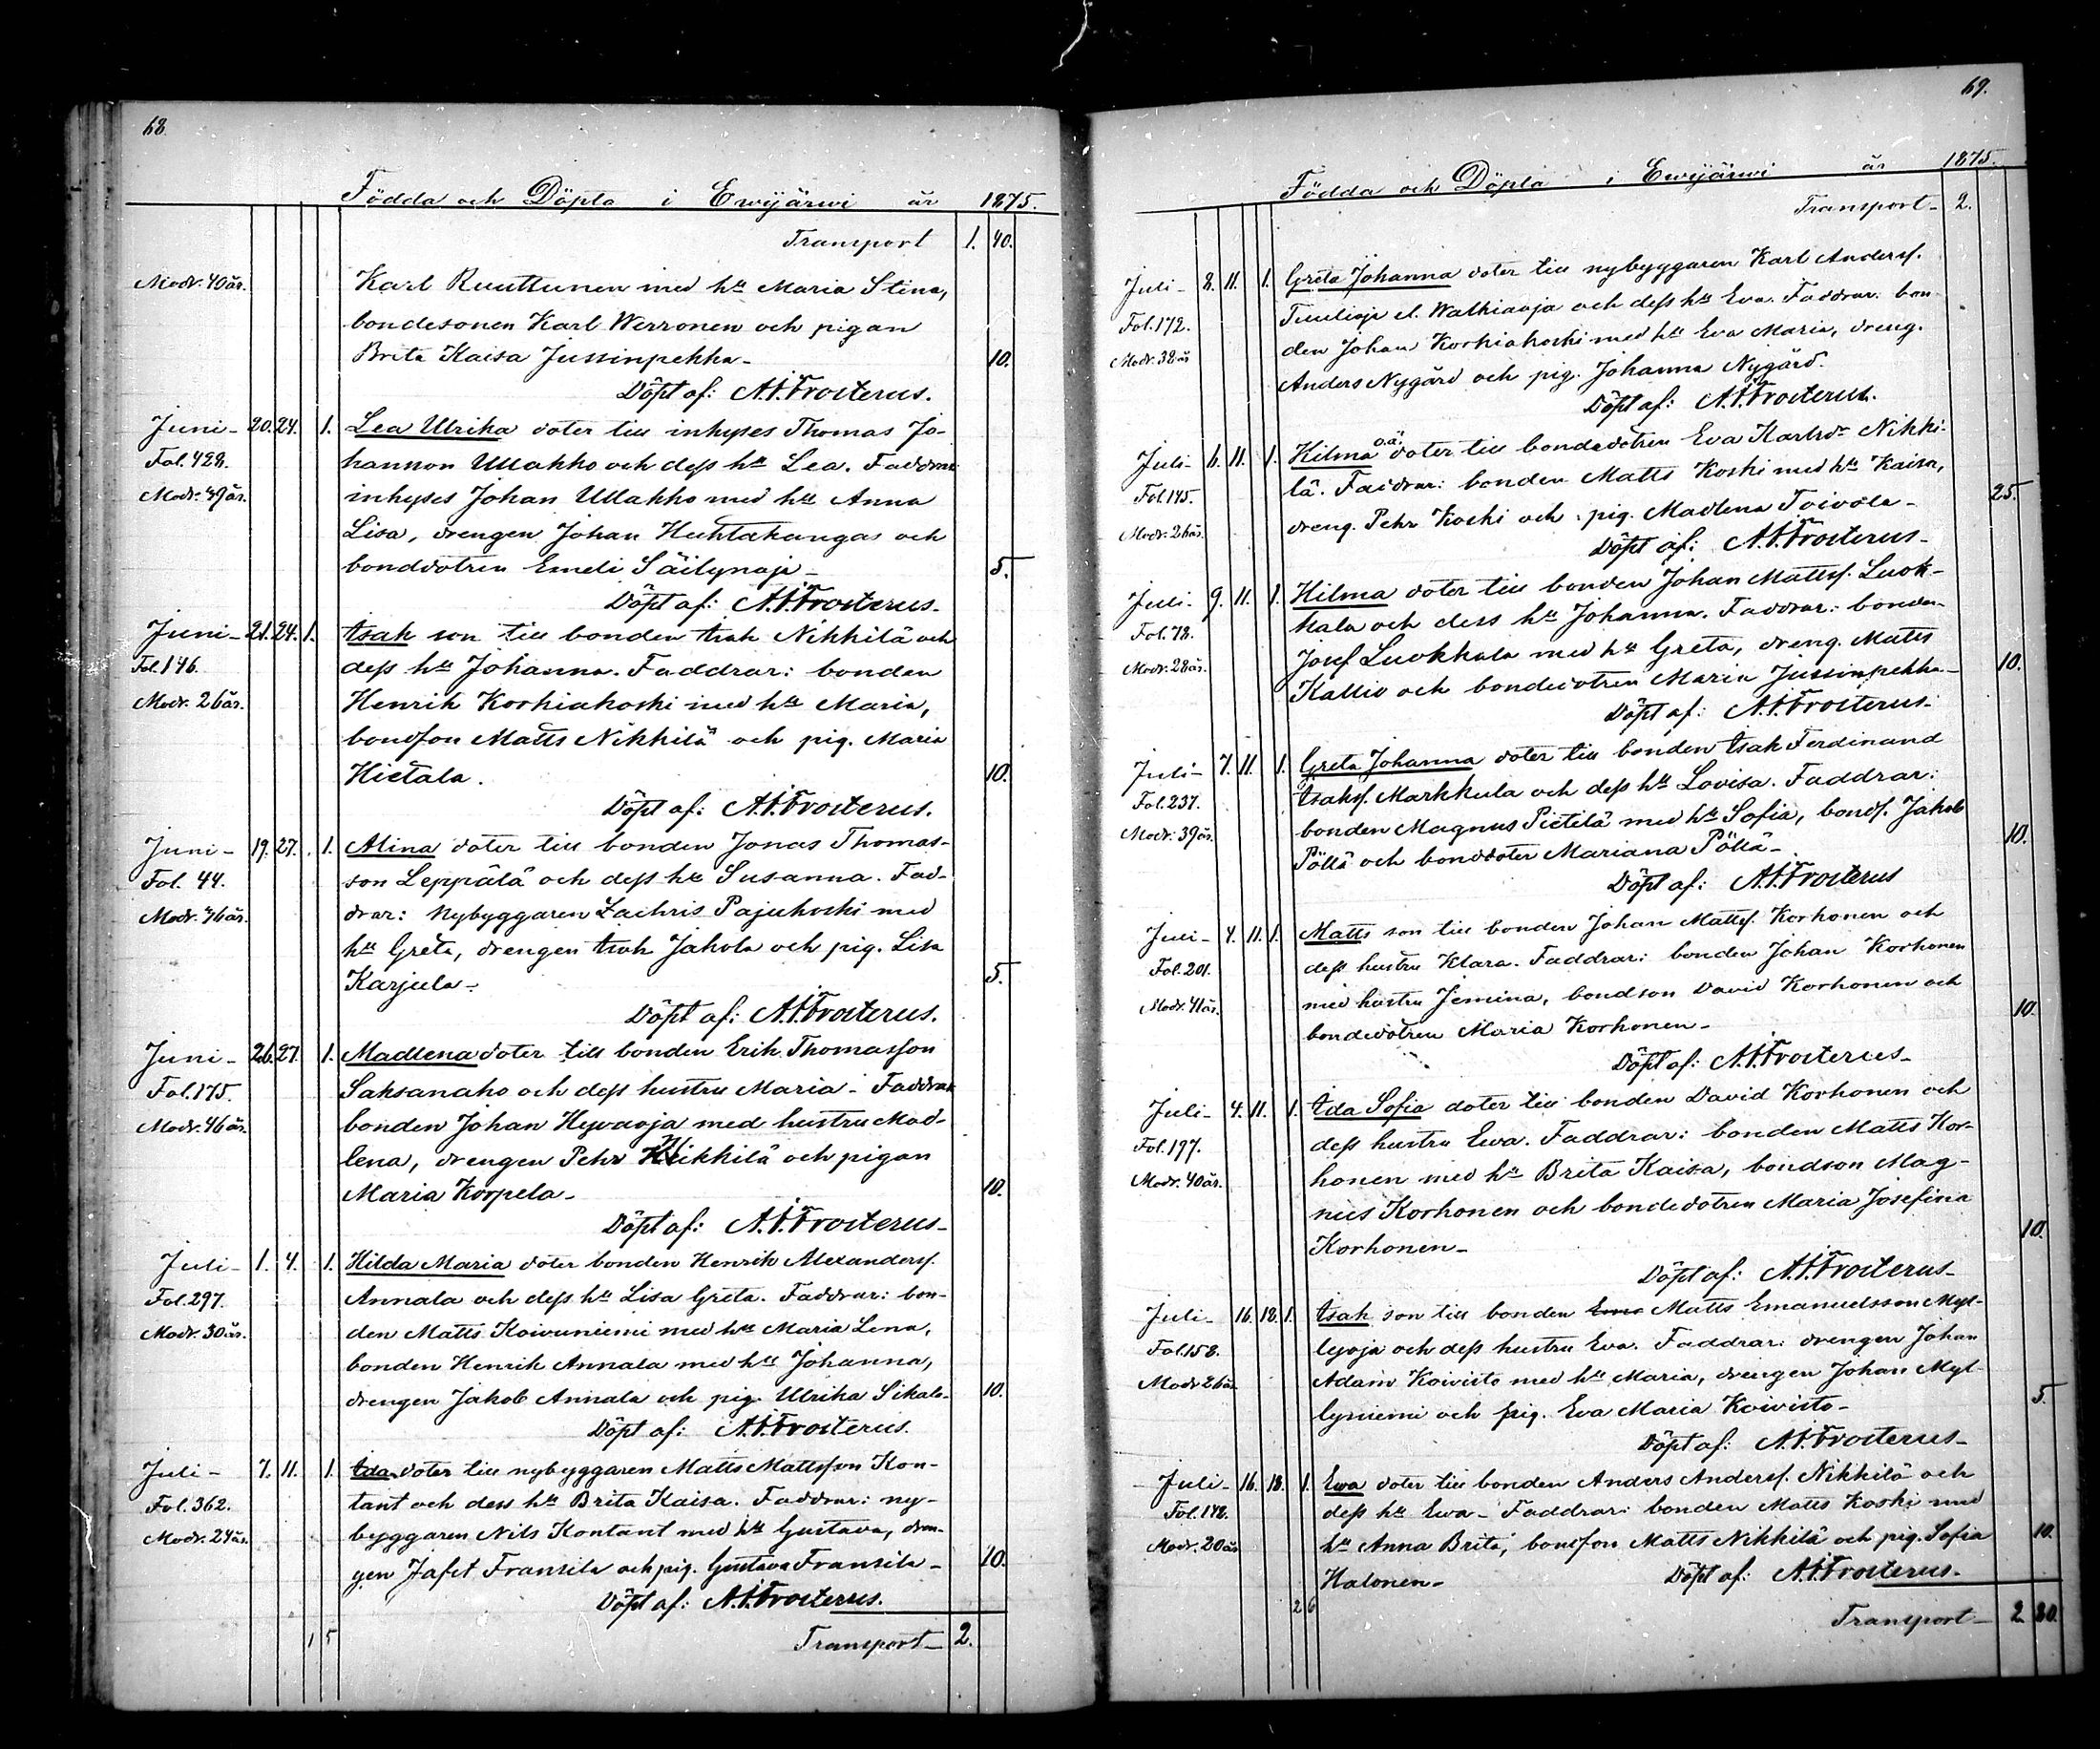 68.
Födda och Döpta i Ewijärwi år 1875.
Transport 1. 40.
Modr. 40 år. Karl Ruuttunen med hu Maria Stina,
bondesonen Karl Werronen och pigan
Brita Kaisa Jussinpekka - 10.
Döpt af: A. F. Frosterus.
Juni - 20. 24. 1. Lea Ulrika doter till inhyses Thomas Jo-
Fol. 428. hansson Ullakko och dess hu Lea. Faddrar
Modr. 49 år. inhyses Johan Ullakko med hu Anna
Lisa, drengen Johan Huhtakangas och
bonddotren Emeli Säilynoja - 5.
Döpt af: A. F. Frosterus -
Juni - 21. 24. 1. Isak son till bonden Isak Nikkilä och
Fol. 146. dess hu Johanna. Faddrar: bonden
Modr. 26 år. Henrik Korkiakoski med hu Maria,
bondson Matts Nikkilä och pig. Maria
Hietala. 10.
Döpt af: A. F. Frosterus.
Juni - 19. 27. 1. Alina doter till bonden Jonas Thomas-
Fol. 44. son Leppälä och dess hu Susanna. Fad-
Modr. 46 år. drar: Nybyggaren Zachris Pajukoski med
hu Greta, drengen Isak Jakola och pig. Lisa
Karjula - 5.
Döpt af: A. F. Frosterus.
Juni - 26. 27. 1. Madlena doter till bonden Erik Thomasson
Fol. 175. Saksanaho och dess hustru Maria - Faddrar
Modr. 46 år. bonden Johan Hyvaoja med hustru Mad-
lena, drengen Pehr Nikkilä och pigan
Maria Korpela - 10.
Döpt af: A. F. Frosterus -
Juli - 1. 4. 1. Hilda Maria doter bonden Henrik Alexanders.
Fol. 297. Annala och dess hu Lisa Greta. Faddrar: bon-
Modr. 30 år. den Matts Koivuniemi med hu Maria Lena,
bonden Henrik Annala med hu Johanna,
drengen Jakob Annala och pig. Ulrika Sikala - 10.
Döpt af: A. F. Frosterus.
Juli - 7. 11. 1. Ida doter till nybyggaren Matts Mattsson Kon-
Fol. 362. tant och dess hu Brita Kaisa. Faddrar: ny-
Modr. 24 år. byggaren Nils Kontant med hu Gustava, dren-
gen Jafet Fransila och pig. Gustava Fransila - 10.
Döpt af: A. F. Frosterus.
1 5 Transport - 2.
69.
Födda och Döpta i Ewijärwi år 1875.
Transport - 2.
Juli - 8. 11. 1. Greta Johanna doter till nybyggaren Karl Anderss.
Fol. 172. el. Wathiaoja och dess hu Eva. Faddrar: bon-
Modr. 38 år den Johan Korkiakoski med hu Eva Maria, dreng.
Anders Nygård och pig. Johanna Nygård.
Döpt af: A. F. Frosterus.
Juli - 6. 11. 1. Hilma o.ä. doter till bondedotren Eva Karlsdr Nikki-
Fol. 145. lä. Faddrar: bonden Matts Koski med hu Kaisa, 25.
Modr. 26 år. dreng. Pehr Koski och pig. Madlena Toivola -
Döpt af: A. F. Frosterus -
Juli - 9. 11. 1. Hilma doter till bonden Johan Mattss. Luok-
Fol. 78. kala och dess hu Johanna. Faddrar: bonden
Modr. 28 år. Josef Luokkala med hu Greta, dreng. Matts
Kallio och bondedotren Maria Jussinpekka - 10.
Döpt af: A. F. Frosterus -
Juli - 7. 11. 1. Greta Johanna doter till bonden Isak Ferdinand
Fol. 237. Isakss. Markkula och dess hu Lovisa. Faddrar:
Modr. 39 år. bonden Magnus Pietilä med hu Sofia, bonds. Jakob
Pöllä och bonddoter Mariana Pöllä - 10.
Döpt af: A. F. Frosterus
Juli - 4. 11. 1. Matts son till bonden Johan Mattss. Korhonen och
Fol. 201. dess hustru Klara. Faddrar: bonden Johan Korhonen
Modr. 41 år. med hustru Jemina, bondson David Korhonen och 10.
bondedotren Maria Korhonen -
Döpt af: A. F. Frosterus -
Juli - 4. 11. 1. Ida Sofia doter till bonden David Korhonen och
Fol. 197. dess hustru Ewa. Faddrar: bonden Matts Kor-
Modr. 40 år. honen med hu Brita Kaisa, bondson Mag-
nus Korhonen och bondedotren Maria Josefina
Korhonen - 10.
Döpt af: A. F. Frosterus -
Juli - 16. 18. 1. Isak son till bonden Matts Emanuelsson Myl-
Fol. 158. lyoja och dess hustru Eva. Faddrar: drengen Johan
Modr 26 år Adam Koivisto med hu Maria, drengen Johan Myl-
lyniemi och pig. Eva Maria Koivisto - 5.
Döpt af: A. F. Frosterus -
Juli - 16. 18. 1. Ewa doter till bonden Anders Anderss. Nikkilä och
Fol. 148. dess hu Ewa - Faddrar: bonden Matts Koski med
Modr. 20 år hu Anna Brita, bondson Matts Nikkilä och pig. Sofia 10.
Halonen - Döpt af: A. F. Frosterus.
2 6 Transport - 2 80.